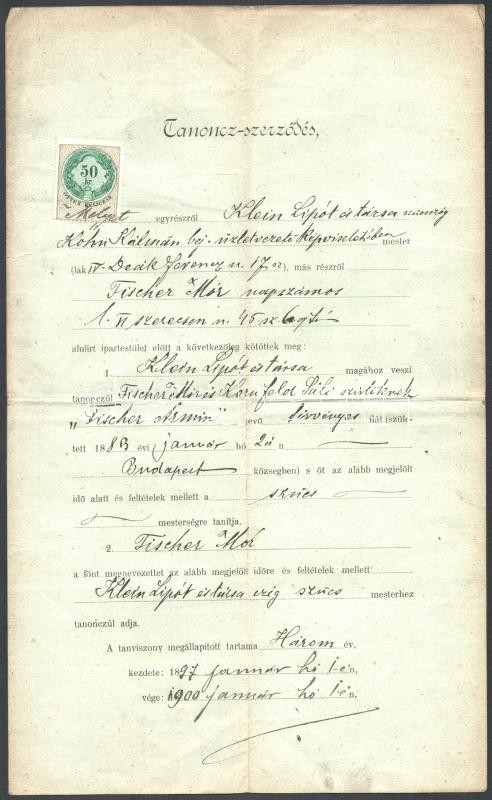 Tanoncz-szerződés,
50
kr.
ÖTVEN KRAJCZÁR
Melyet egyrészről Klein Lipót és társa szűcsczég
Kohn Kálmán bej. üzletvezető képviseletében mester
(lak IV. Deák Ferencz u. 17 sz), más részről
Fischer Mór napszámos
l. VI szerecsen u. 45 sz.
alulirt ipartestület előtt a következőleg kötöttek meg:
1. Klein Lipót és társa magához veszi
tanonczúl Fischer Mór és Kornfeld Páli szülőknek
"Fischer Ármin" nevű törvényes fiát (szüle-
tett 1883 évi január hó 2án
Budapest községben) s őt az alább megjelölt
idő alatt és feltételek mellett a szűcs
mesterségre tanítja.
2. Fischer Mór
a fönt megnevezettet az alább megjelölt időre és feltételek mellett
Klein Lipót és társa czég szűcs mesterhez
tanonczúl adja.
A tanviszony megállapított tartama Három év,
kezdete: 1897 január hó 1-én,
vége: 1900 január hó 1-én,